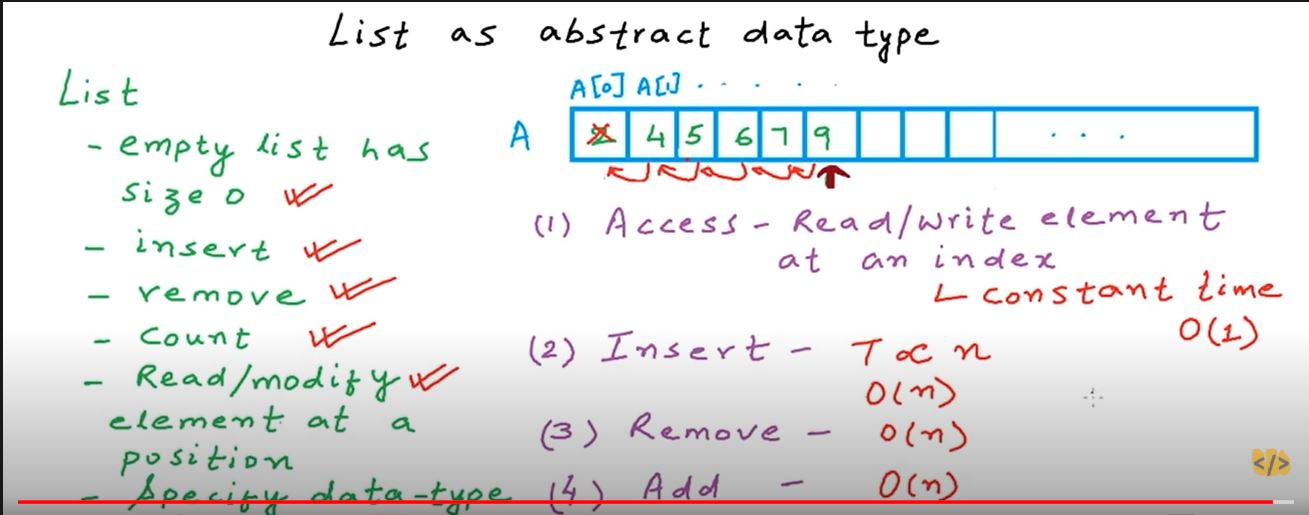 List as abstract data type
List
- empty list has
size 0
- insert
- remove
- Count
- Read/modify
element at a
position
- Specify data-type
A[0] A[1] . . . .
A 2 4 5 6 7 9 . . .
(1) Access - Read/write element
at an index
constant time
O(1)
(2) Insert - T ∝ n
O(n)
(3) Remove - O(n)
(4) Add - O(n)
</>